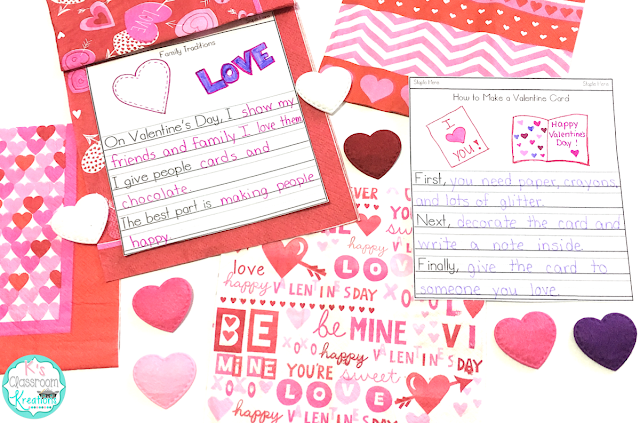 Family Traditions
LOVE
On Valentine's Day, I show my
friends and family I love them.
I give people cards and
chocolate.
The best part is making people
happy.
Staple Here
Staple Here
How to Make a Valentine Card
I
you!
Happy
Valentine's
Day!
First, you need paper, crayons,
and lots of glitter.
Next, decorate the card and
write a note inside.
Finally, give the card to
someone you love.
love happy LOVE
happy VALENTINES DAY
BE be MINE VI
happy VALENTINES DAY
MINE YOU'RE sweet
XOXO LOVE
happy VALENTINES
K's
Classroom
Kreations